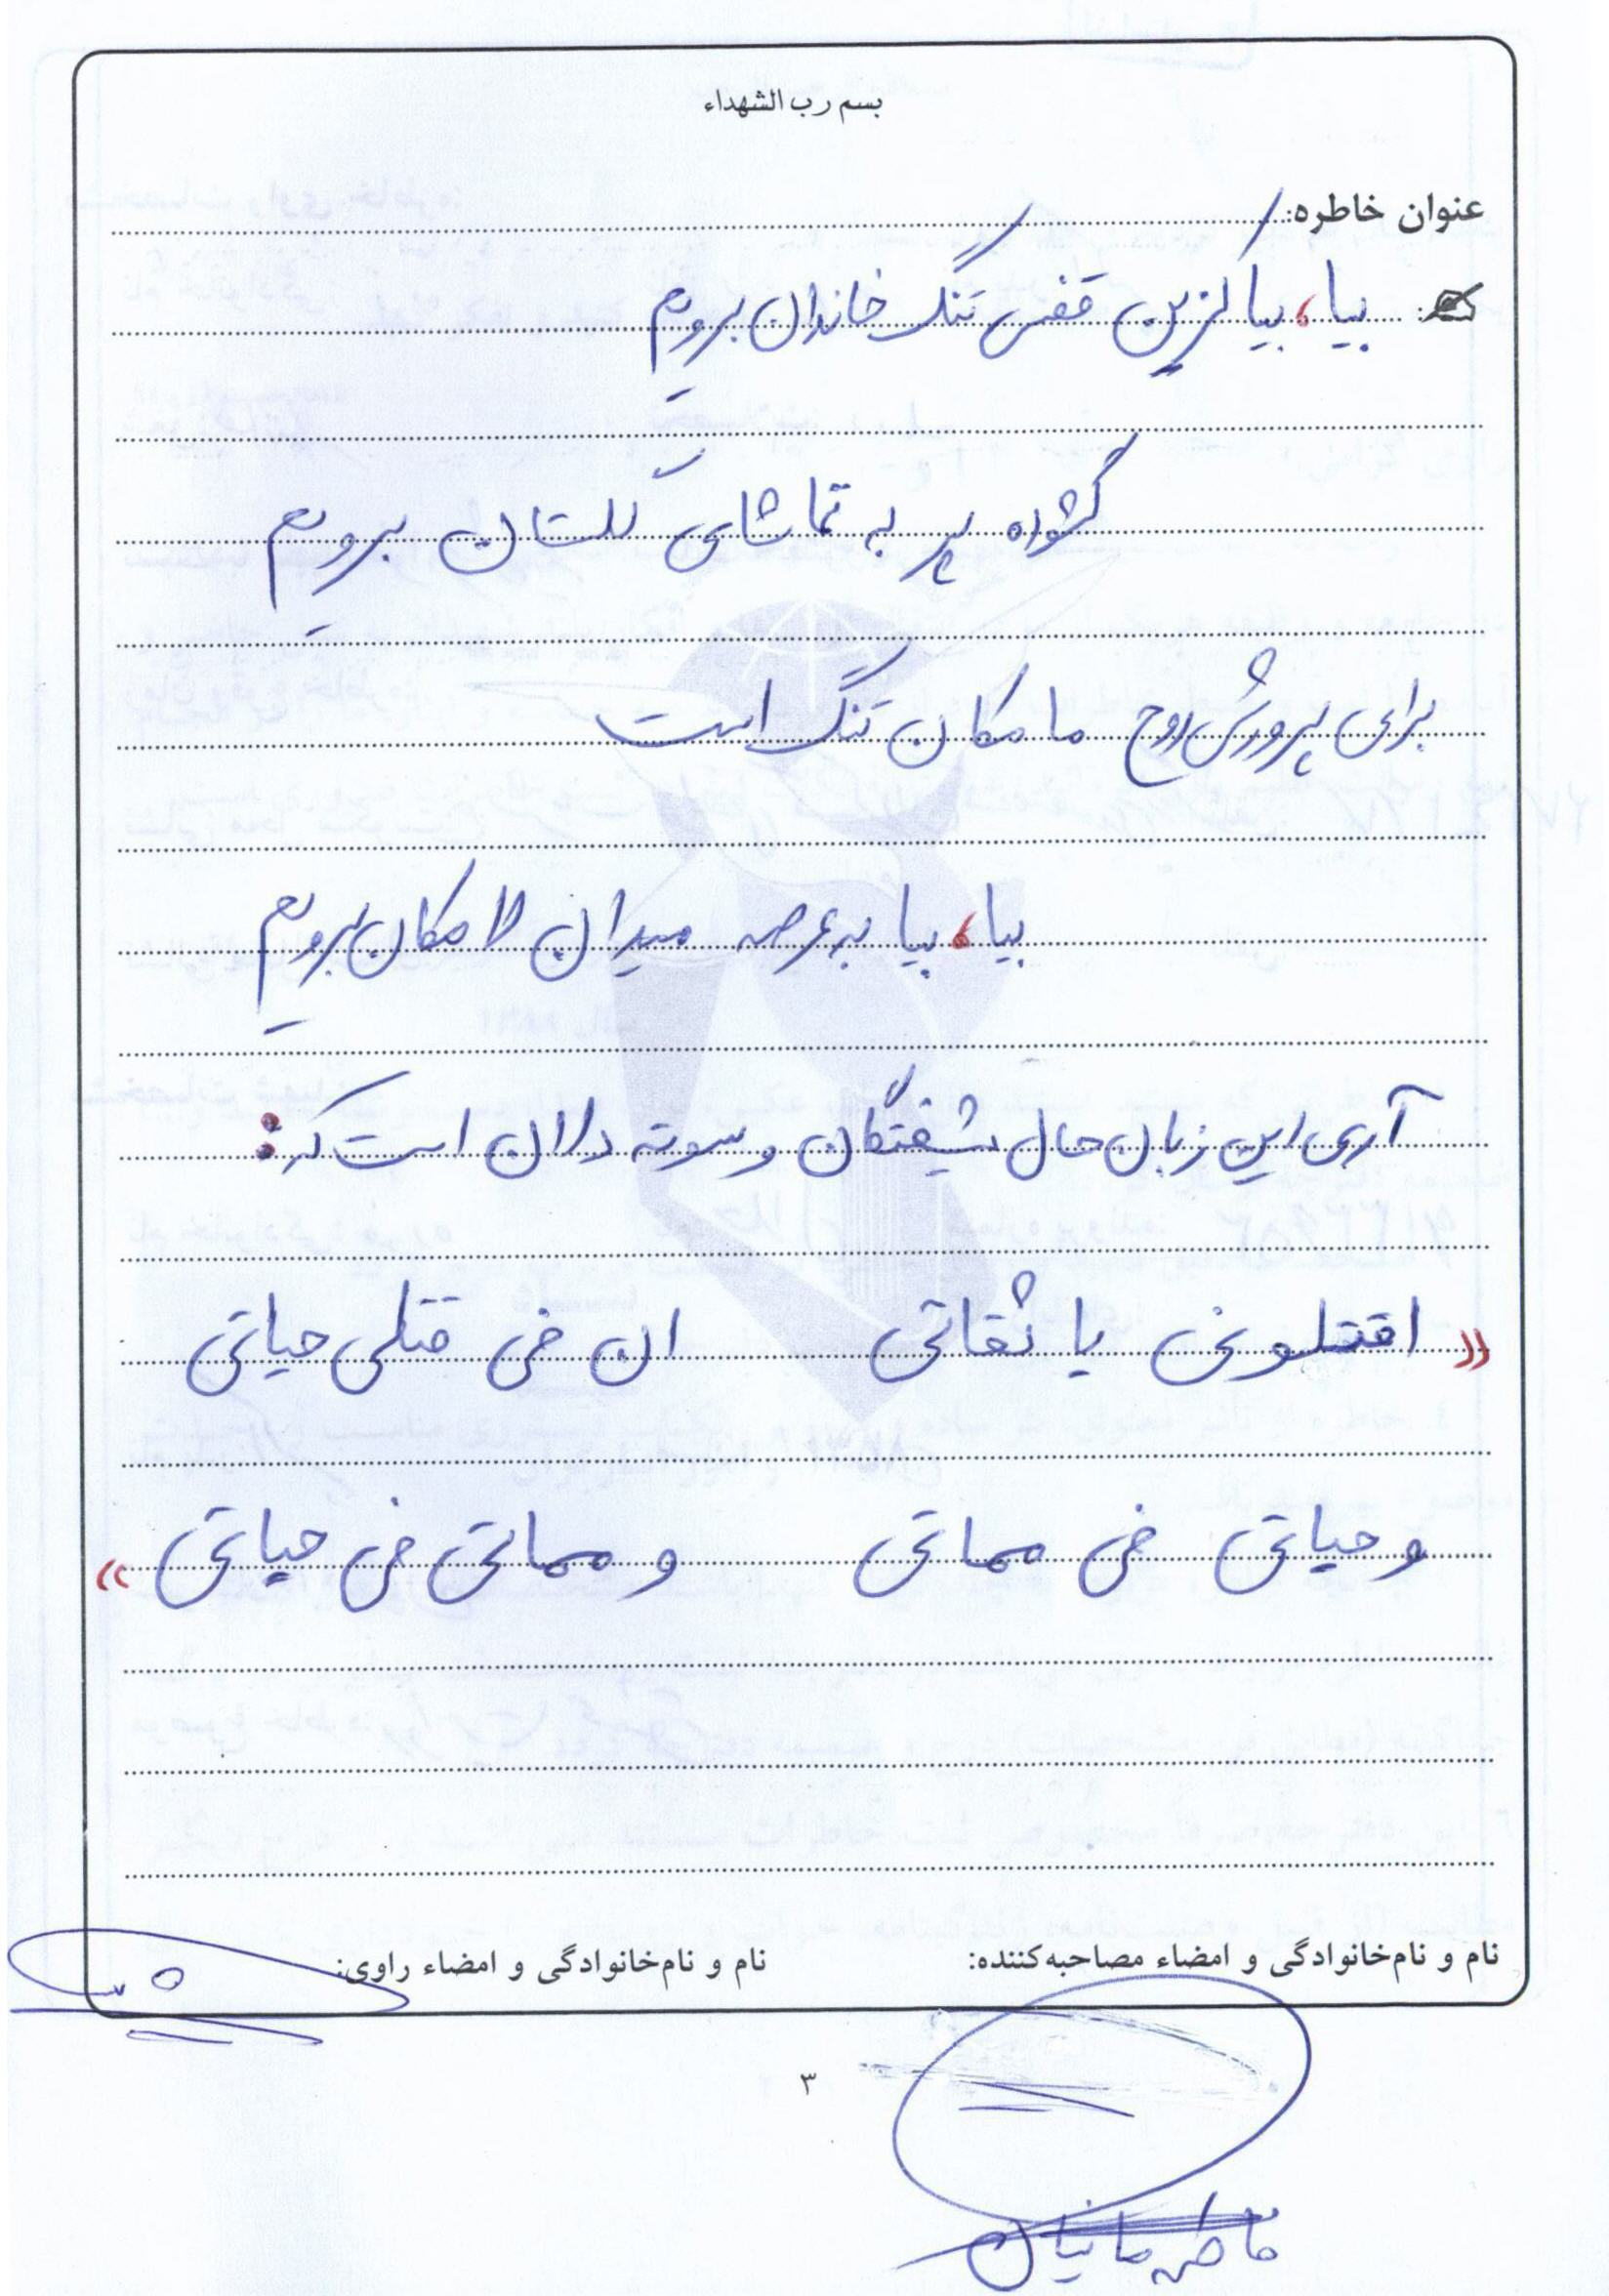 بسم رب الشهداء
عنوان خاطره:
بیا، بیا کزین قفس تنگ خاندان برویم
گشوده پر به تماشای گلستان برویم
برای پرورش روح ما مکان تنگ است
بیا، بیا به عرصه میدان لامکان برویم
آری این زبان حال شیفتگان و سوته دلان است که:
«اقتلونی یا ثقاتی ان فی قتلی حیاتی
و حیاتی فی مماتی و مماتی فی حیاتی»
نام و نام‌خانوادگی و امضاء مصاحبه‌کننده: نام و نام‌خانوادگی و امضاء راوی:
۳